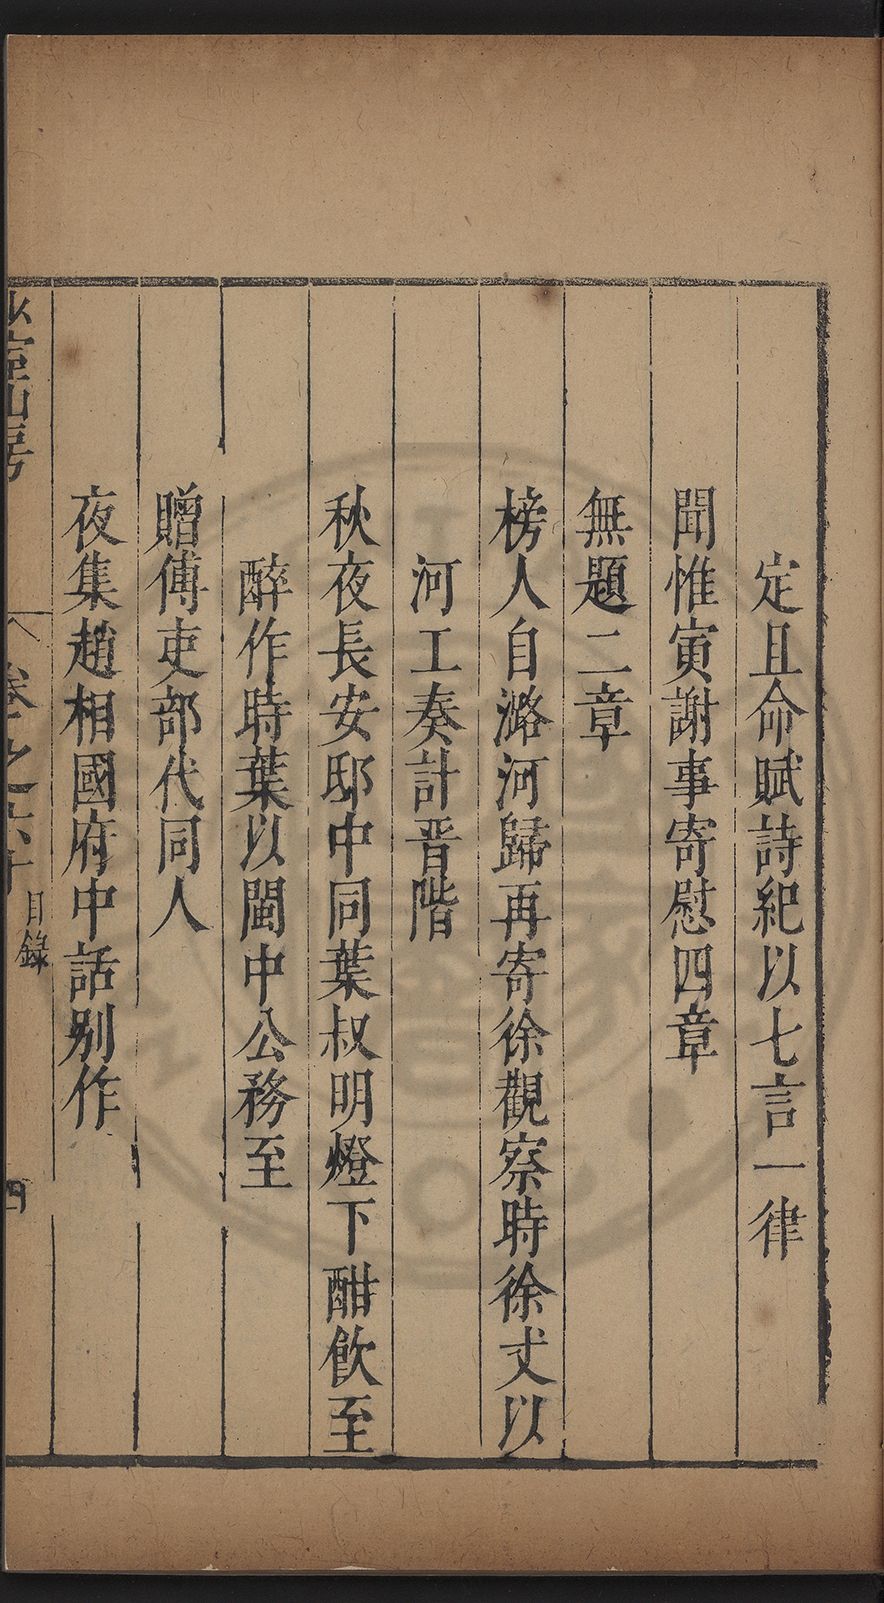 定且命賦詩紀以七言一律
聞惟寅謝事寄慰四章
無題二章
榜人自潞河歸再寄徐觀察時徐丈以
河工奏計晋階
秋夜長安邸中同葉叔明燈下酣飲至
醉作時葉以閩中公務至
贈傅吏部代同人
夜集趙相國府中話別作
山房
卷之六十 目錄
四